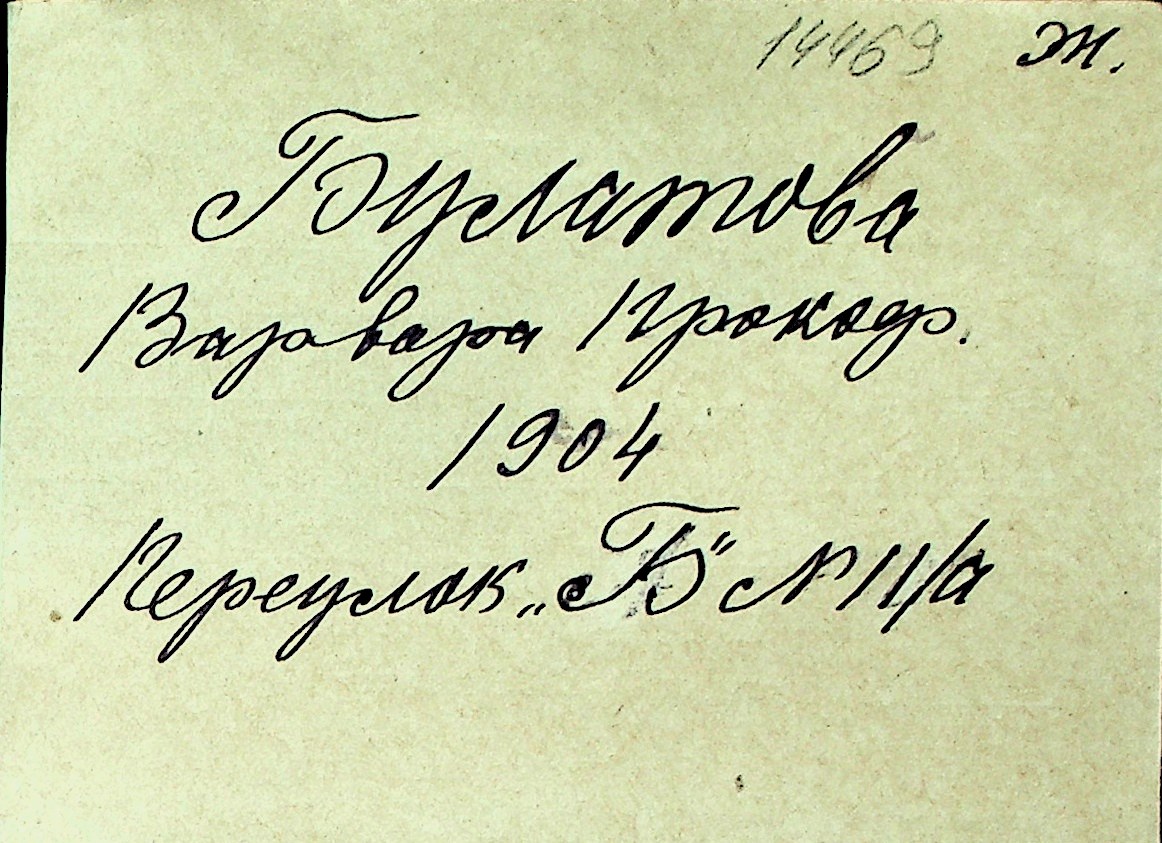 14469 Ж.
Булатова
Варвара Прокоф.
1904
Переулок „Б" № 11/а